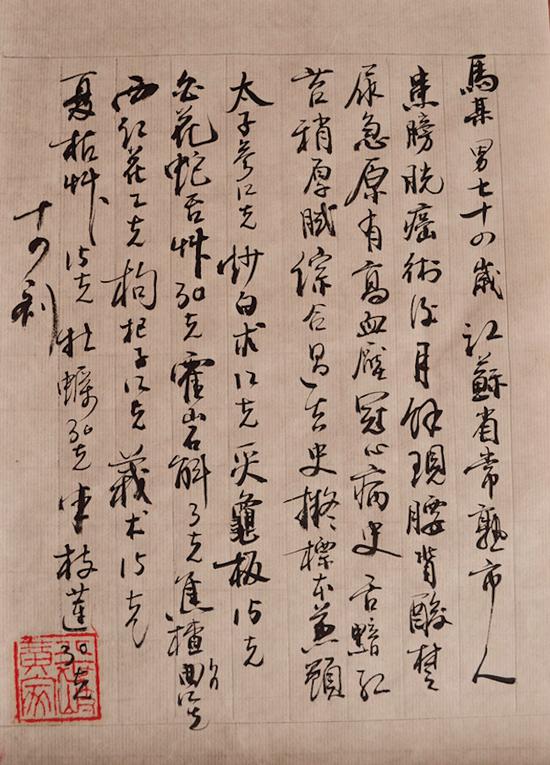 馬某 男 七十四歲 江蘇省常熟市人
患膀胱癌術後月餘現腰背酸楚
尿急原有高血壓冠心病史舌黯紅
苔稍厚膩綜合過去史擬標本兼顧
太子參12克 炒白术12克 炙龜板15克
白花蛇舌艸30克 霍山石斛3克 焦楂曲各12克
西红花2克 枸杞子12克 莪术15克
夏枯艸15克 牡蠣30克 半枝蓮30克
十四剂